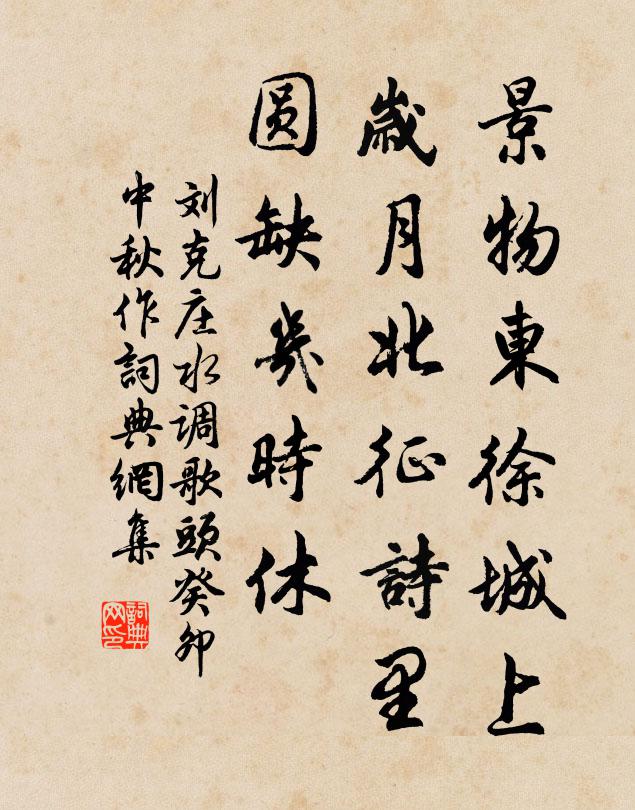 景物東徐城上
歲月北征詩里
圆缺幾時休
刘克庄水调歌頭癸卯
中秋作詞典網集
詞典网印